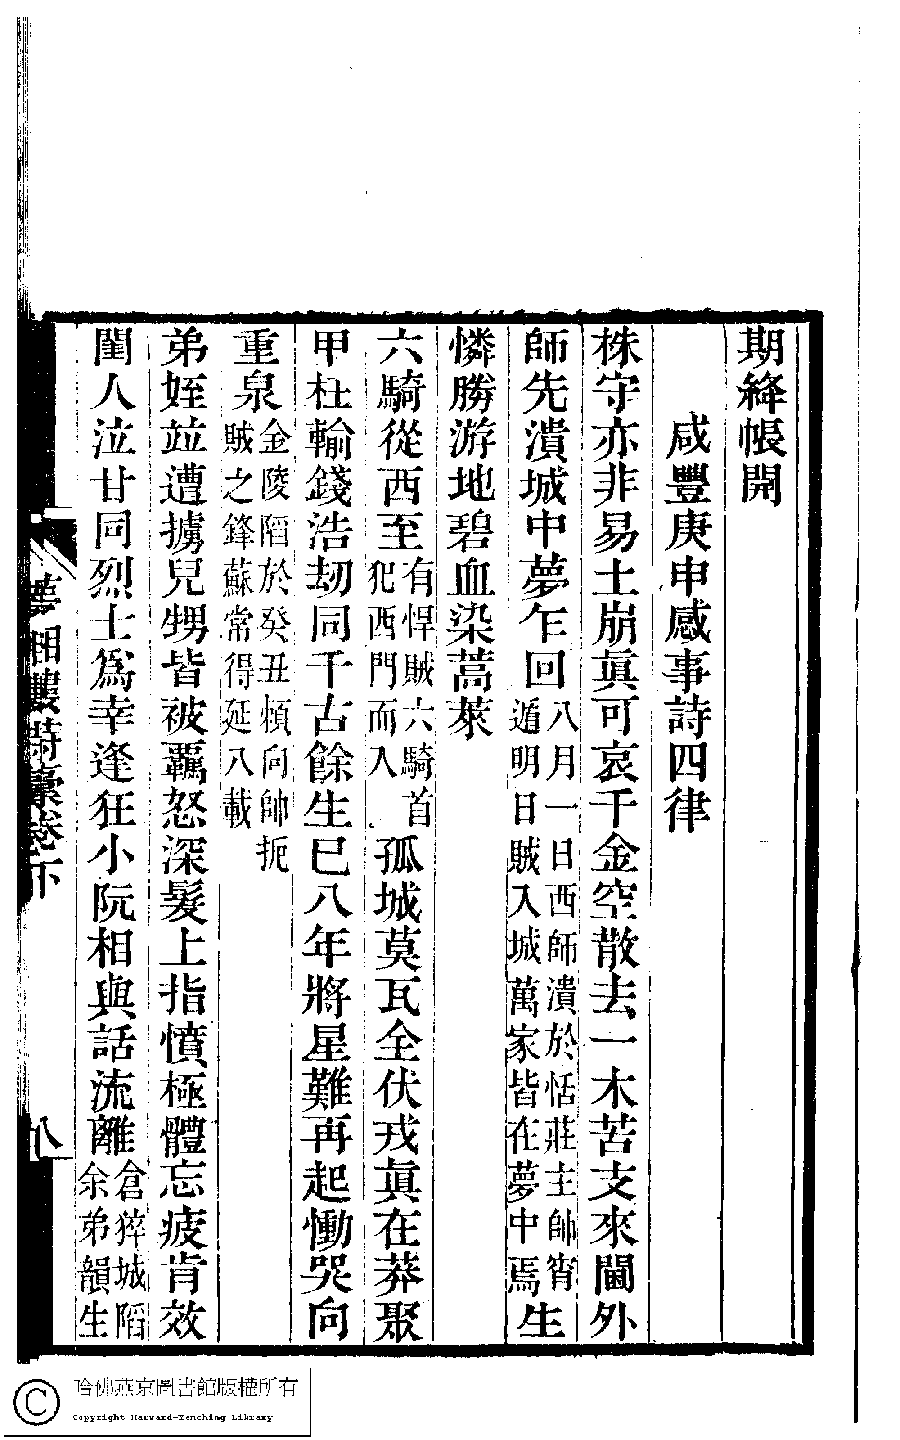 期絳帳開
咸豐庚申感事詩四律
株守亦非易土崩眞可哀千金空散去一木苦支來閫外
師先潰城中夢乍回八月一日西師潰於恬莊主帥宵遁明日賊入城萬家皆在夢中焉生
憐勝游地碧血染蒿萊
六騎從西至有悍賊六騎首犯西門而入孤城莫瓦全伏戎眞在莽聚
甲枉輸錢浩刧同千古餘生已八年將星難再起慟哭向
重泉金陵陷於癸丑頼向帥扼賊之鋒蘇常得延八載
弟姪竝遭擄兒甥皆被羈怒深髮上指憤極體忘疲肯效
閨人泣甘同烈士爲幸逢狂小阮相與話流離倉猝城陷余弟韻生
夢湘樓詩藁卷下
八
哈佛燕京圖書館版權所有
Copyright Harvard-Yenching Library